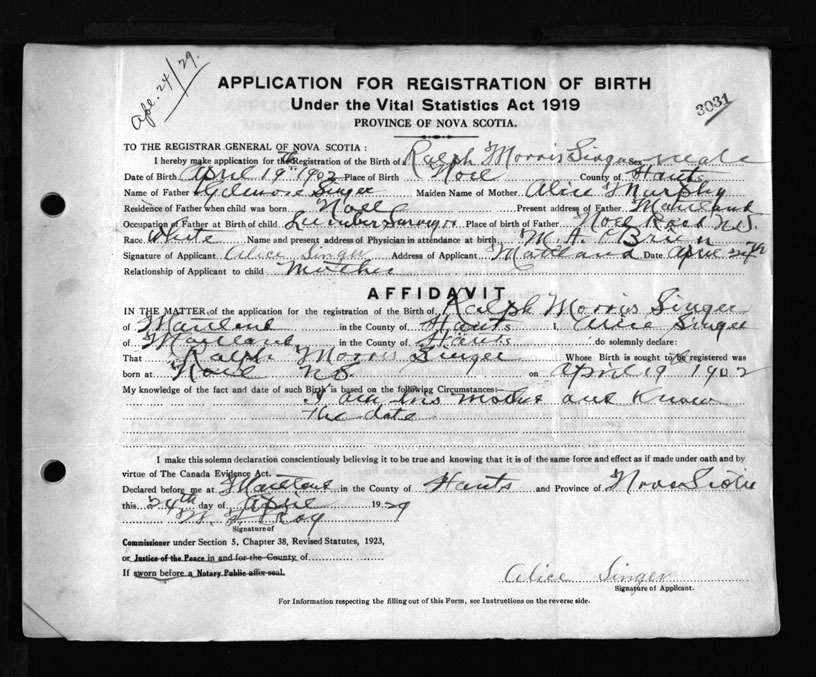 Ape. 24/29.
APPLICATION FOR REGISTRATION OF BIRTH
3031
Under the Vital Statistics Act 1919
PROVINCE OF NOVA SCOTIA.
TO THE REGISTRAR GENERAL OF NOVA SCOTIA :
I hereby make application for the Registration of the Birth of a Ralph Morris Singer Sex male
Date of Birth April 19th 1902 Place of Birth Noel County of Hants
Name of Father Singer Maiden Name of Mother Alice Murphy
Residence of Father when child was born Noel Present address of Father Maitland
Occupation of Father at Birth of child Lumber Surveyor Place of birth of Father Noel Road N.S.
Race White Name and present address of Physician in attendance at birth M. A. O'Brien
Signature of Applicant Alice Singer Address of Applicant Maitland Date April 24th
Relationship of Applicant to child Mother
AFFIDAVIT
IN THE MATTER, of the application for the registration of the Birth of Ralph Morris Singer
of Maitland in the County of Hants I, Alice Singer
of Maitland in the County of Hants do solemnly declare:
That Ralph Morris Singer Whose Birth is sought to be registered was
born at Noel N.S. on April 19 1902
My knowledge of the fact and date of such Birth is based on the following Circumstances:—
I am his mother and know
the date
I make this solemn declaration conscientiously believing it to be true and knowing that it is of the same force and effect as if made under oath and by
virtue of The Canada Evidence Act.
Declared before me at Maitland in the County of Hants and Province of Nova Scotia
this 24th day of April 1929
W. Roy
Signature of
Commissioner under Section 5, Chapter 38, Revised Statutes, 1923,
or Justice of the Peace in and for the County of
If sworn before a Notary Public affix seal.
Alice Singer
Signature of Applicant.
For Information respecting the filling out of this Form, see Instructions on the reverse side.